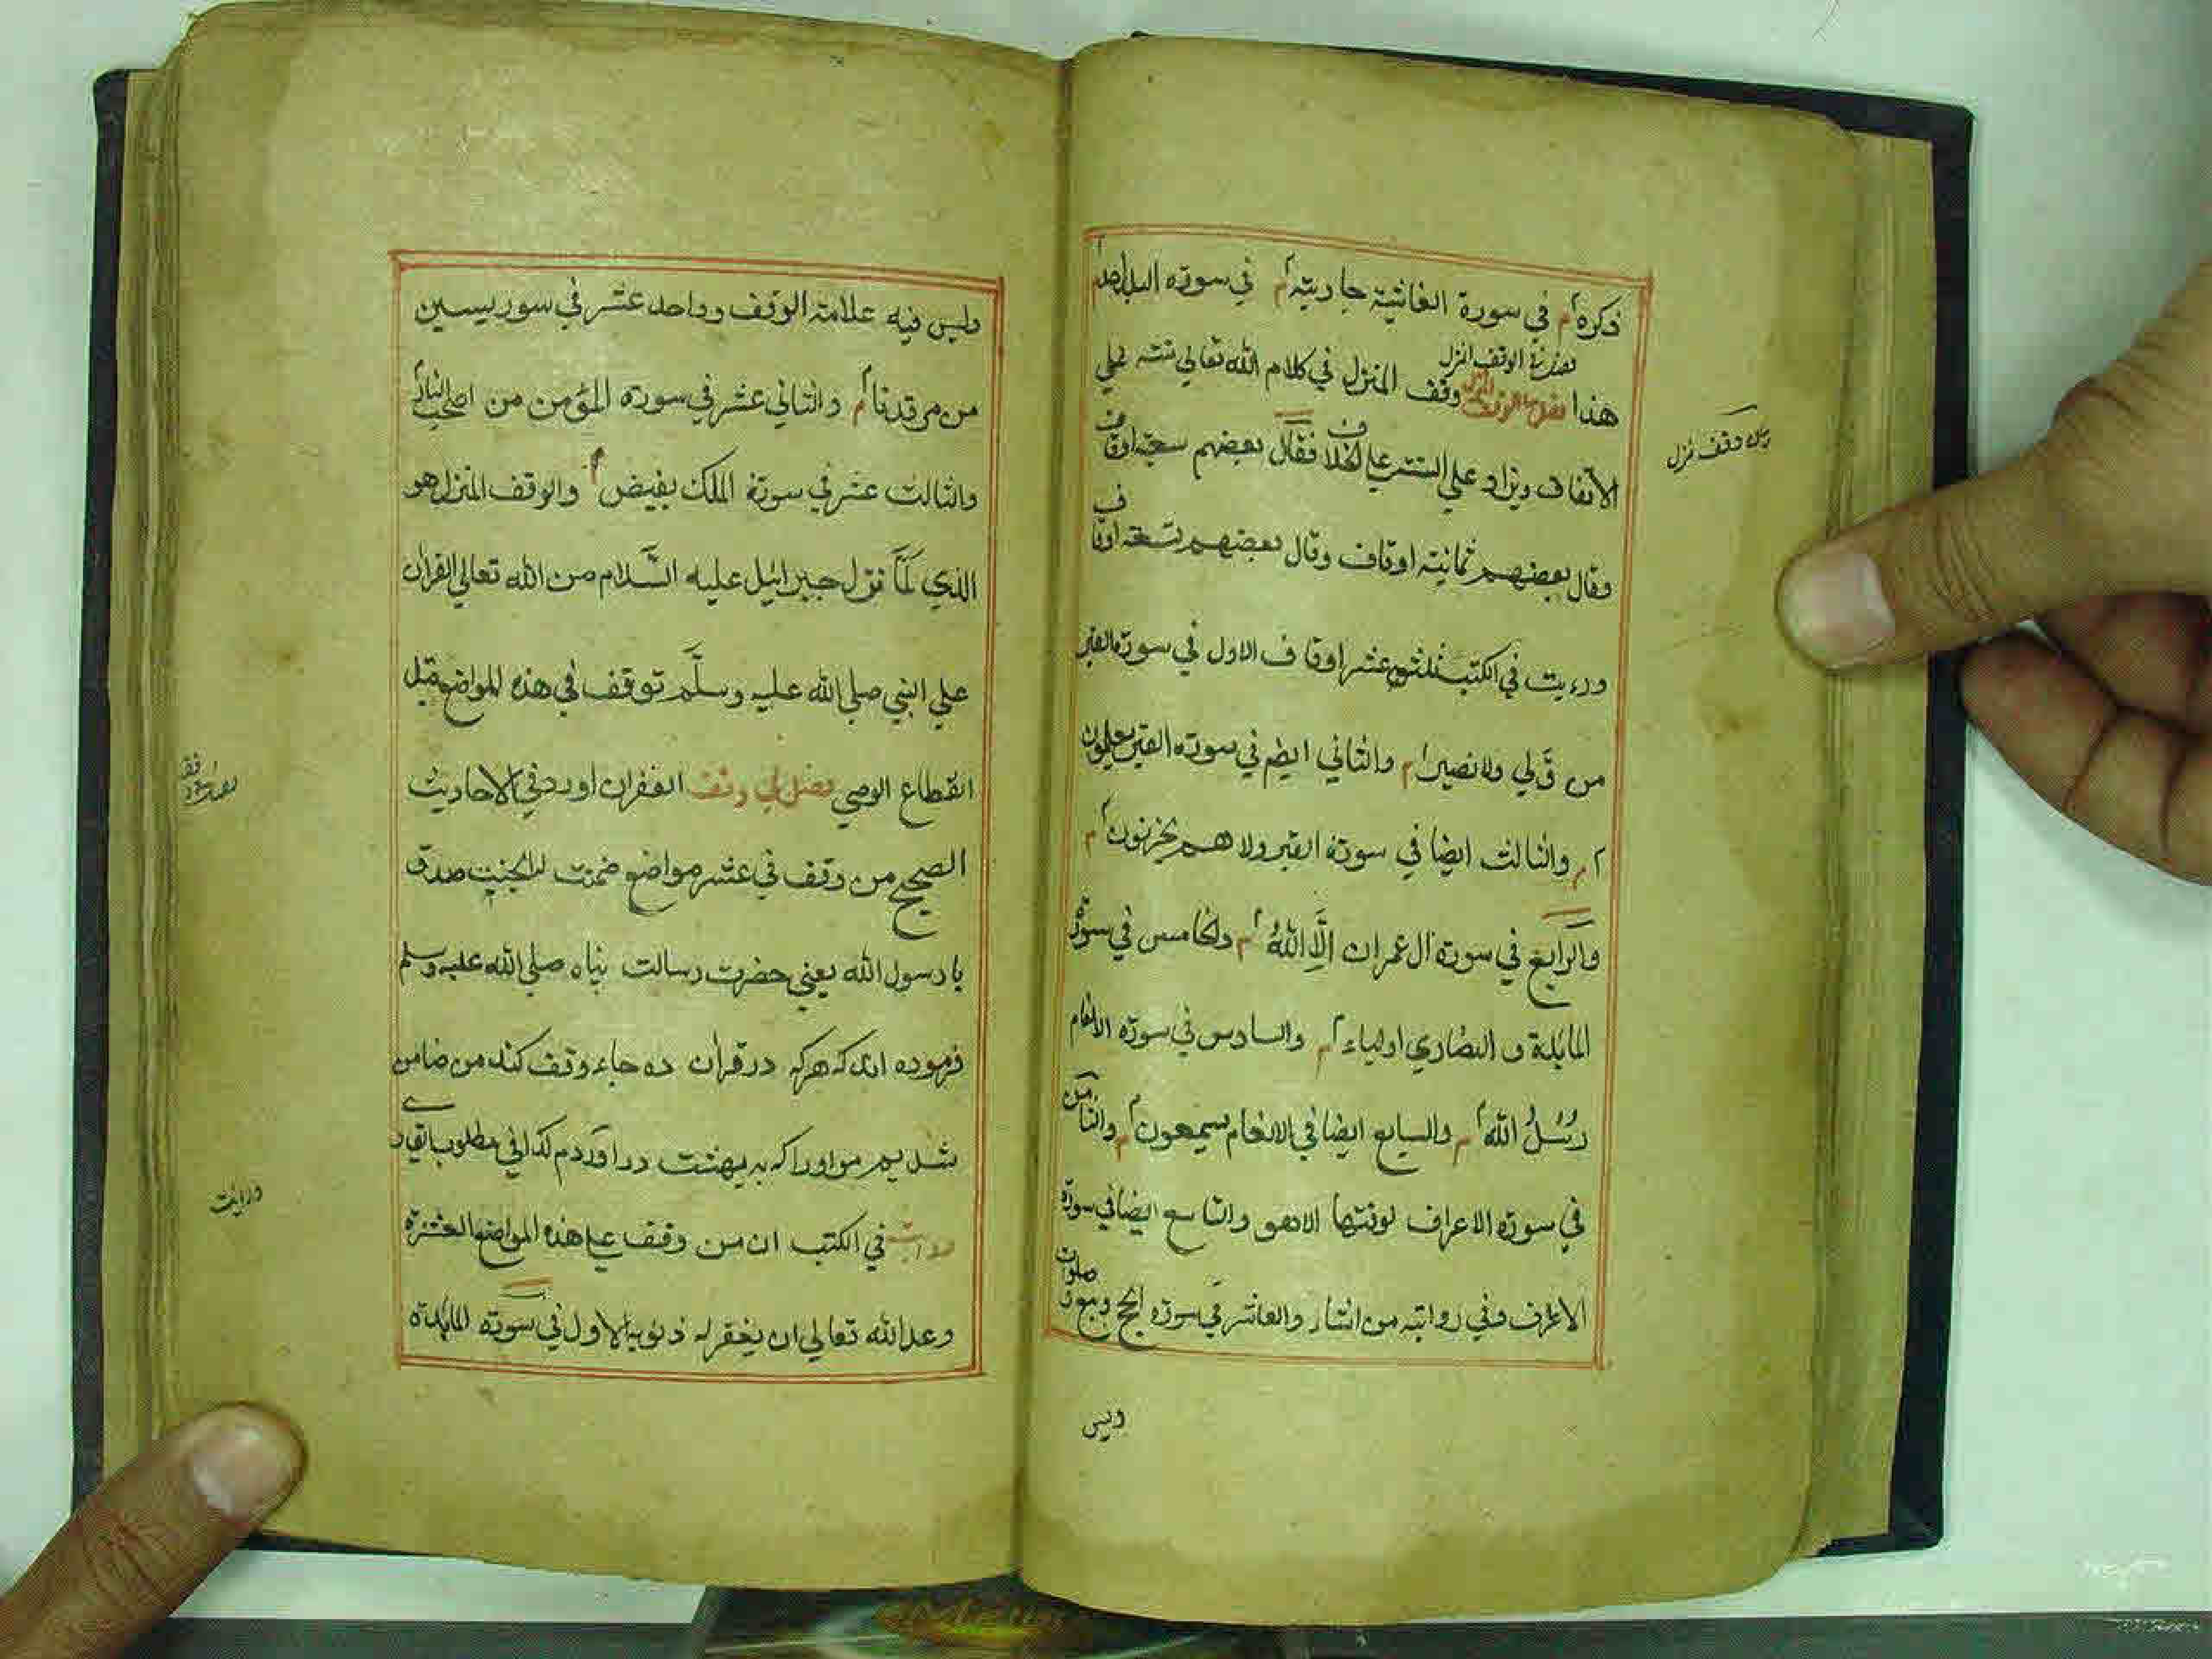 ذكره م في سورة الغاشية جارية م في سورة البلد احدا
بصرية الوقف المنزل
هذا وقف المنزل في كلام الله تعالي ستة علي
بيان وقف نزل
الاتفاق ويزاد علي الستة علي الخلاف فقال بعضهم سبعة اوقاف
وقال بعضهم ثمانية اوقاف وقال بعضهم تسعة اوقاف
ورءيت في الكتب ثلثة عشر اوقاف الاول في سورة البقر
من ولي ولا نصير م والثاني ايضم في سورة البقر يعلمون
م والثالث ايضا في سورة البقر ولا هم يحزنون م
والرابع في سورة ال عمران الّا اللهُ م والخامس في سورة
المائدة و النصاري اولياء م والسادس في سورة الانعام
رسُلُ الله م والسابع ايضا في الانعام يسمعون م والثامن
في سورة الاعراف لوقتها الا هو والتاسع ايضا في سورة
الاعرف وفي رواية من انشاز والعاشر في سورة الحج وبيع وصلوات
وليس
وليس فيه علامة الوقف وواحد عشر في سور يسين
من مرقدنا م والثاني عشر في سورة المؤمن من اصحٰب النار
والثالث عشر في سورة الملك يقبض م والوقف المنزل هو
الذي لمّا نزل جبرائيل عليه السّلام من الله تعالي القران
علي النبي صلي الله عليه وسلّم توقف في هذه المواضع قبل
انقطاع الوحي فصل في وقف الغفران اورد في الاحاديث
الصحيح من وقف في عشر مواضع ضمنت له الجنة صدق
يا رسول الله يعني حضرت رسالت پناه صلي الله عليه وسلم
فرموده اند كه هركه در قران ده جاء وقف كند من ضامن
شديم مر اورا كه به بهشت در آوردم كذا في مطلوب القاري
ورايت
في الكتب ان من وقف علي هذه المواضع العشرة
وعد الله تعالي ان يغفر له ذنوبه الاول في سورة المائدة